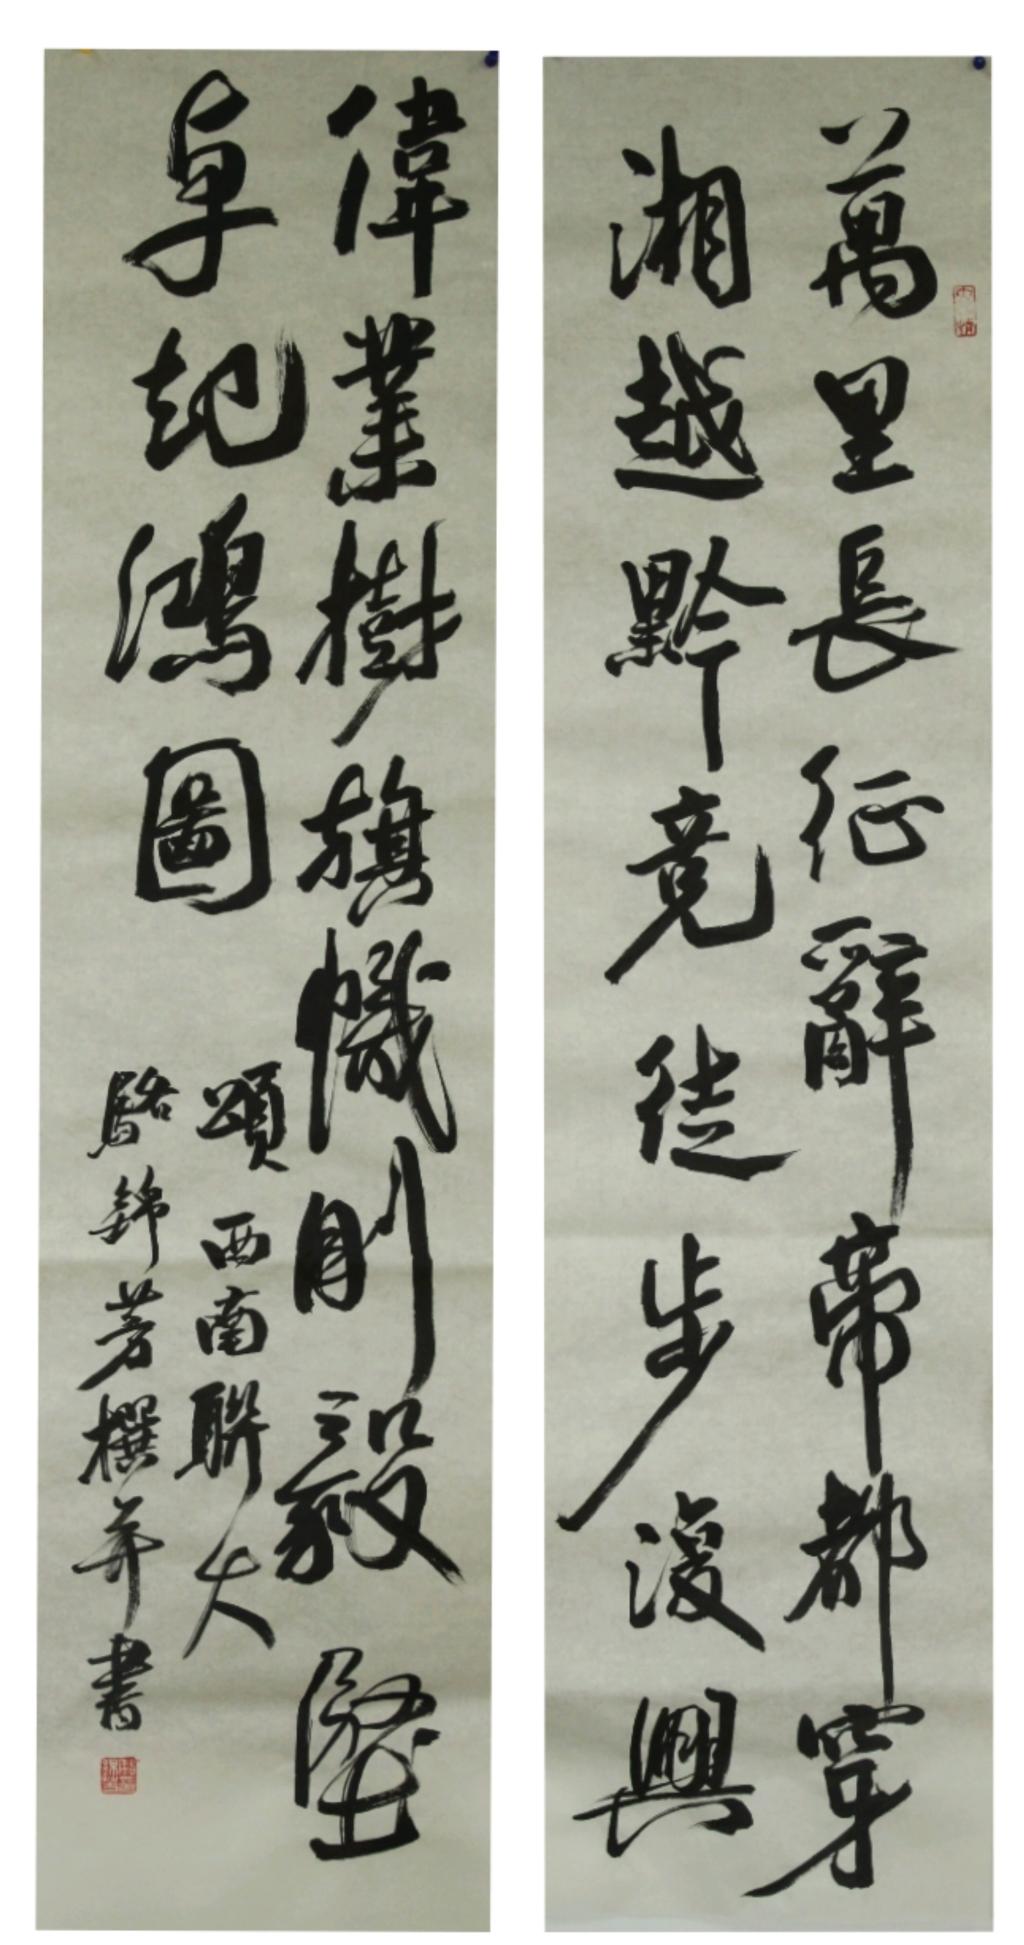 萬里長征辭帝都穿
湘越黔竟徒步漫興
偉業樹旗幟剛毅堅
卓起鴻圖
頌西南聯大
駱錦芳撰并書